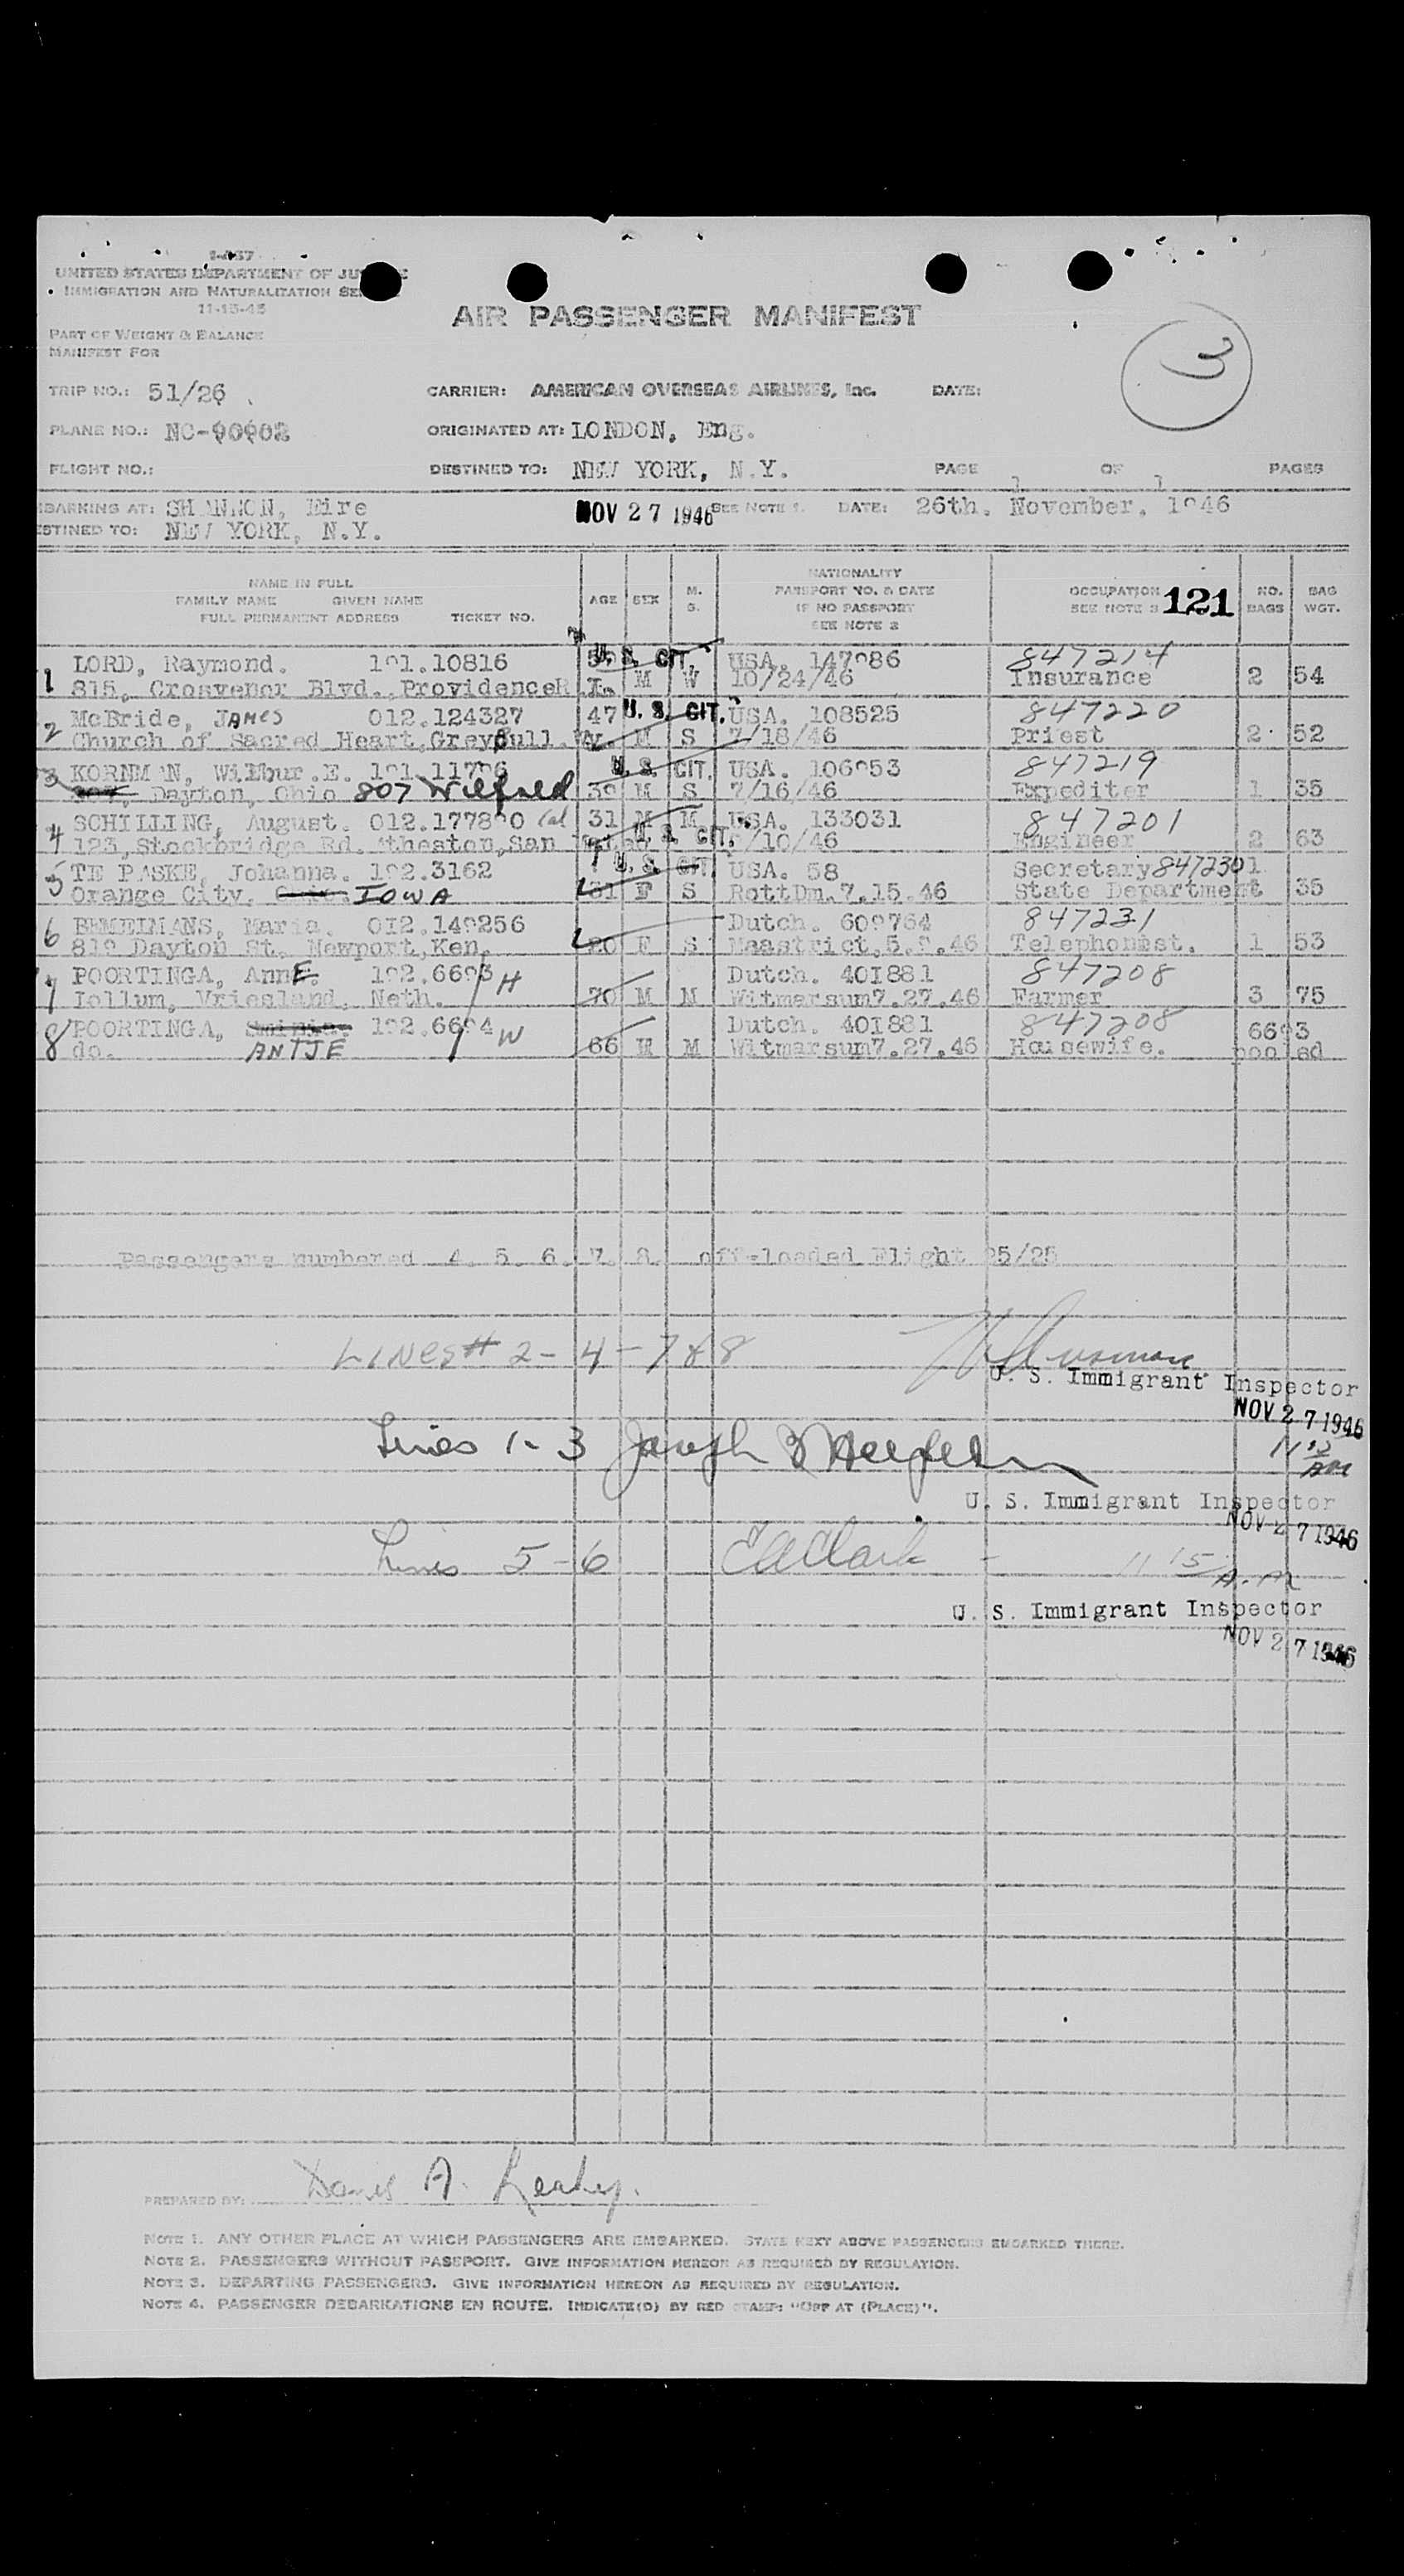 I-467
UNITED STATES DEPARTMENT OF JUSTICE
IMMIGRATION AND NATURALITATION SE
11-15-45
PART OF WEIGHT & BALANCE
MANIFEST FOR
AIR PASSENGER MANIFEST
3
TRIP NO.: 51/26 CARRIER: AMERICAN OVERSEAS AIRLINES, Inc. DATE:
PLANE NO.: NC-90902 ORIGINATED AT: LONDON, Eng.
FLIGHT NO.: DESTINED TO: NEW YORK, N.Y. PAGE 1 OF 1 PAGES
MBARKING AT: SHANNON, Eire NOV 27 1946 SEE NOTE 1. DATE: 26th. November, 1946
ESTINED TO: NEW YORK, N.Y.
NAME IN FULL
FAMILY NAME GIVEN NAME
FULL PERMANENT ADDRESS TICKET NO.
AGE SEX M. S.
NATIONALITY
PASSPORT NO. & DATE
IF NO PASSPORT
SEE NOTE 2
OCCUPATION
SEE NOTE 3 121
NO. BAGS
BAG WGT.
1 LORD, Raymond. 191.10816 U.S. CIT. USA. 147986 847214
815, Grosvenor Blvd., Providence R.I. M W 10/24/46 Insurance 2 54
2 McBride, JAMES 012.124327 47 U.S. CIT. USA. 108525 847220
Church of Sacred Heart, Greybull. Wy. M S 7/18/46 Priest 2 52
3 KORNMAN, Wilbur.E. 191.11796 U.S. CIT. USA. 106953 847219
Dayton, Ohio 807 Wilfred 39 M S 7/16/46 Expediter 1 35
4 SCHILLING, August. 012.177890 Cal 31 M M USA. 133031 847201
123, Stockbridge Rd. Atheston, San U.S. CIT. /10/46 Engineer 2 63
5 TE PASKE, Johanna. 192.3162 U.S. CIT. USA. 58 Secretary 847230 1
Orange City. IOWA 31 F S RottDm.7.15.46 State Department 35
6 BEMELMANS, Maria. 012.149256 Dutch. 609764 847231
819 Dayton St. Newport, Ken. 20 F S Maastrict,5.9.46 Telephonist. 1 53
7 POORTINGA, AnnE. 192.6693 H Dutch. 401881 847208
Lollum, Vriesland, Neth. 70 M M Witmarsum7.27.46 Farmer 3 75
8 POORTINGA, 192.6694 W Dutch. 401881 847208 6693
do. ANTJE 66 M Witmarsum7.27.46 Housewife. pooled
Passengers numbered 4. 5. 6. 7. 8. off-loaded Flight 25/25
LINES # 2 - 4 - 7 & 8
U. S. Immigrant Inspector
NOV 27 1946
Lines 1 - 3 Joseph
U. S. Immigrant Inspector
NOV 27 1946
Lines 5 - 6 E A Clark - 11 15 A.M
U. S. Immigrant Inspector
NOV 27 1946
PREPARED BY: A.
NOTE 1. ANY OTHER PLACE AT WHICH PASSENGERS ARE EMBARKED. STATE NEXT ABOVE PASSENGERS EMBARKED THERE.
NOTE 2. PASSENGERS WITHOUT PASSPORT. GIVE INFORMATION HEREON AS REQUIRED BY REGULATION.
NOTE 3. DEPARTING PASSENGERS. GIVE INFORMATION HEREON AS REQUIRED BY REGULATION.
NOTE 4. PASSENGER DEBARKATIONS EN ROUTE. INDICATE(D) BY RED STAMP: "OFF AT (PLACE)".